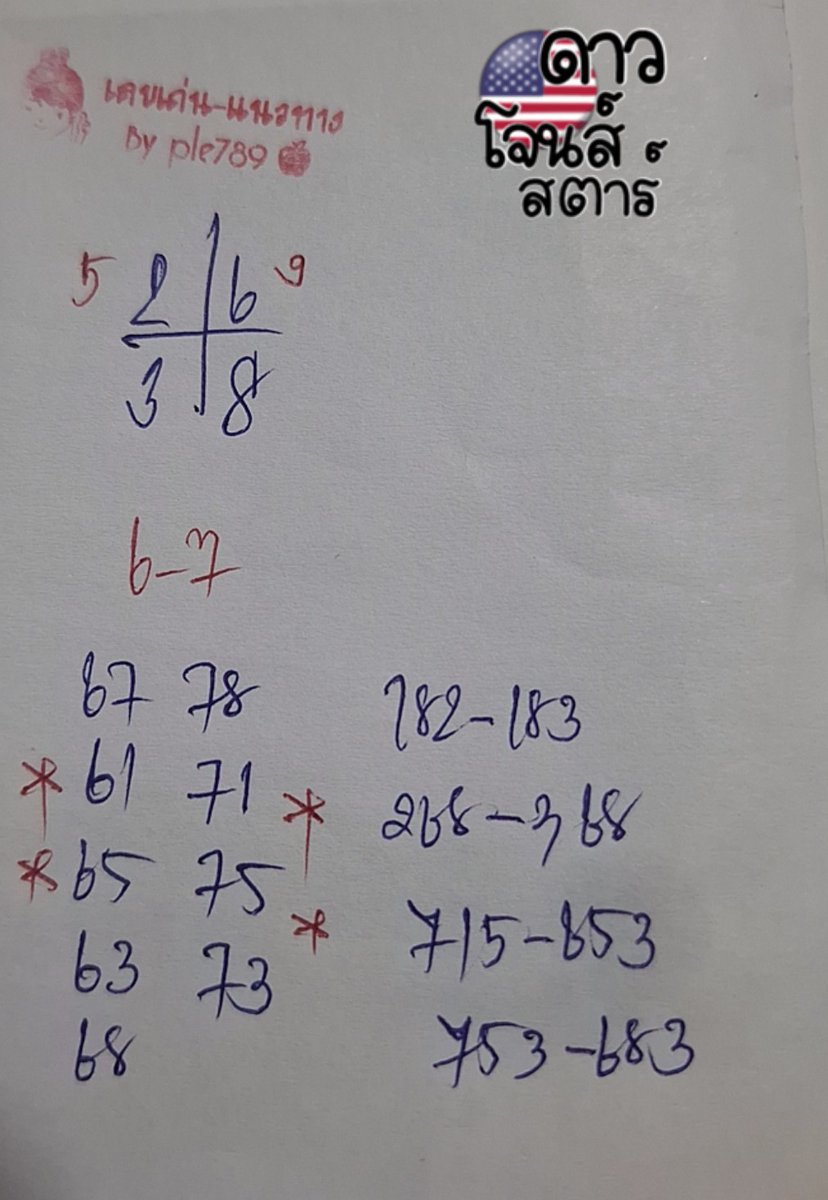 เลขเด่น-แนวทาง
By ple789
ดาว
โจนส์
สตาร์
5 2 6 9
3 8
6-7
67 78
182-183
* 61 71 *
268-368
* 65 75 *
715-653
63 73
68
753-683